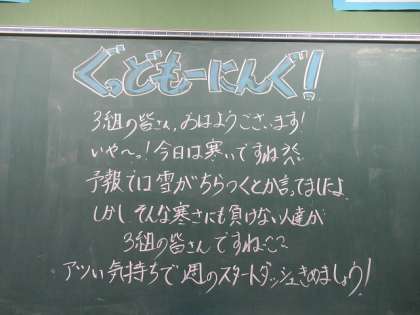 ぐっどもーにんぐ!
3組の皆さん、おはようございます!
いや〜っ!今日は寒いですね
予報では雪がちらつくとか言ってましたよ
しかしそんな寒さにも負けない人達が
3組の皆さんですね
アツい気持ちで週のスタートダッシュきめましょう!